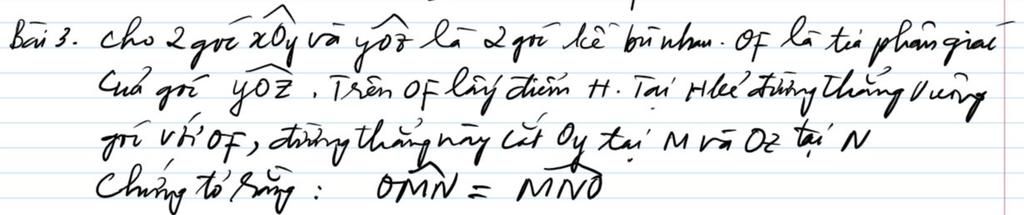 Bài 3. Cho 2 góc xOy và yOz là 2 góc kề bù nhau. OF là tia phân giác
của góc yOz. Trên OF lấy điểm H. Tại H kẻ đường thẳng vuông
góc với OF, đường thẳng này cắt Oy tại M và Oz tại N
Chứng tỏ rằng : OMN = MNO